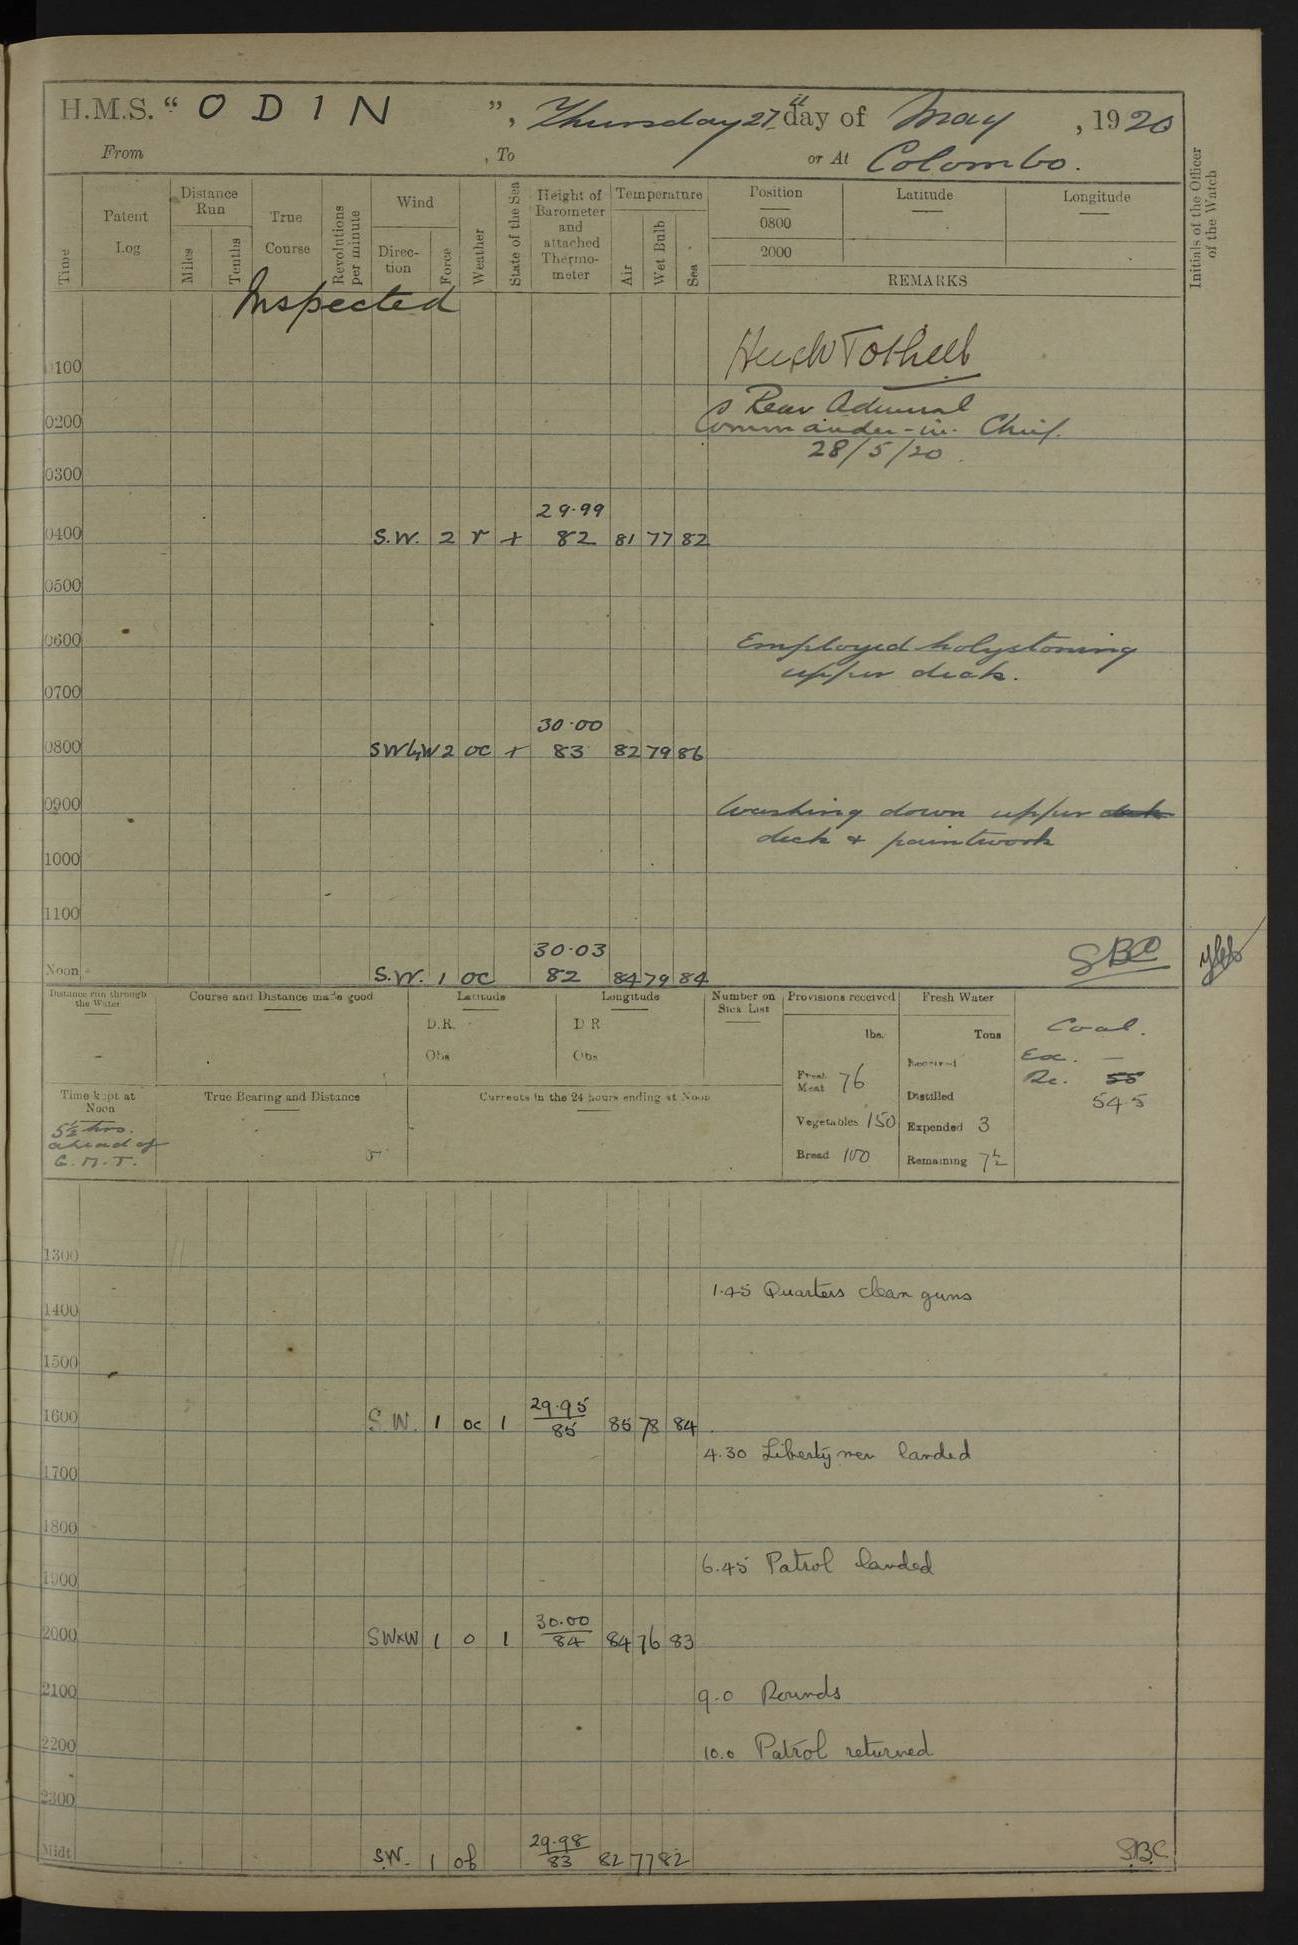 H.M.S. “ ODIN ”, Thursday 27th day of May, 1920
From , To or At Colombo.
Time
Patent Log
Distance Run
Miles
Tenths
True Course
Revolutions per minute
Wind
Direc-tion
Force
Weather
State of the Sea
Height of Barometer and attached Thermo-meter
Temperature
Air
Wet Bulb
Sea
Position
Latitude
Longitude
0800
2000
REMARKS
Initials of the Officer of the Watch
Inspected
0100
Rear Admiral
0200 Commander-in-Chief.
28/5/20
0300
29.99
0400 S.W. 2 r + 82 81 77 82
0500
0600 Employed holystoning
upper deck.
0700
30.00
0800 SWbyW 2 oc + 83 82 79 86
0900 Washing down upper
deck + paintwork
1000
1100
30.03 SBC
Noon S.W. 1 oc 82 84 79 84
Distance run through the Water
Course and Distance made good
Latitude
D.R.
Obs
Longitude
D R
Obs
Number on Sick List
Provisions received
lbs.
Fresh Meat 76
Vegetables 150
Bread 100
Fresh Water
Tons
Received
Distilled
Expended 3
Remaining 7½
Coal.
Ex. —
Re. 55
545
Time kept at Noon
5½ hrs.
ahead of
G.M.T.
True Bearing and Distance
Currents in the 24 hours ending at Noon
1300
1.45 Quarters clean guns
1400
1500
29.95
1600 S.W. 1 oc 1 85 85 78 84
4.30 Liberty men landed
1700
1800
6.45 Patrol landed
1900
30.00
2000 SWxW 1 o 1 84 84 76 83
2100 9.0 Rounds
2200 10.0 Patrol returned
2300
29.98
Midt S.W. 1 ob 83 82 77 82 S.B.C.